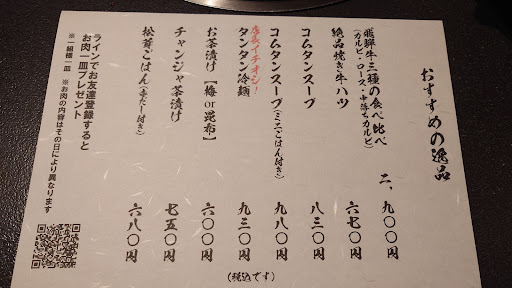 おすすめの逸品
飛騨牛三種の食べ比べ
(カルビ・ロース・中落ちカルビ)
二、九〇〇円
絶品焼き牛ハツ
六七〇円
コムタンスープ
八三〇円
コムタンスープ(ミニごはん付き)
九八〇円
店長イチオシ!
タンタン冷麺
九三〇円
お茶漬け【梅or昆布】
六〇〇円
チャンジャ茶漬け
七五〇円
松茸ごはん(赤だし付き)
六八〇円
(税込です)
ラインでお友達登録すると
お肉一皿プレゼント
※一組様一皿 ※お肉の内容はその日により異なります